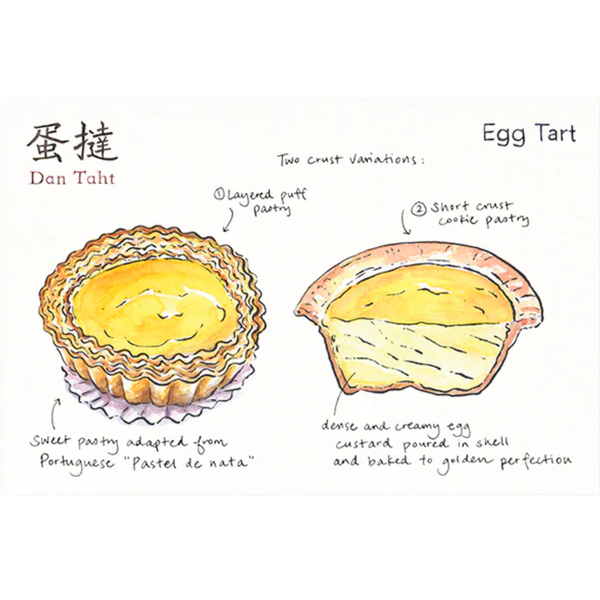 蛋撻
Dan Taht
Egg Tart
Two crust variations:
① Layered puff
pastry
② Short crust
cookie pastry
Sweet pastry adapted from
Portuguese "Pastel de nata"
dense and creamy egg
custard poured in shell
and baked to golden perfection